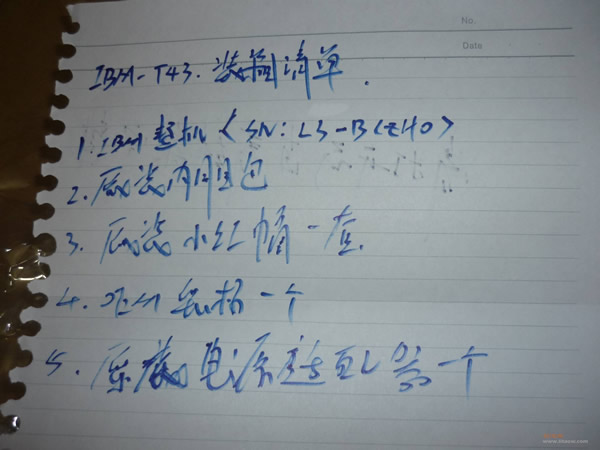 No.
Data
IBM-T43.装箱清单.
1.IBM整机<SN:L3-B(ZH0>
2.原装内胆包
3.原装小红帽一套.
4.一个
5.原装电源适配器一个